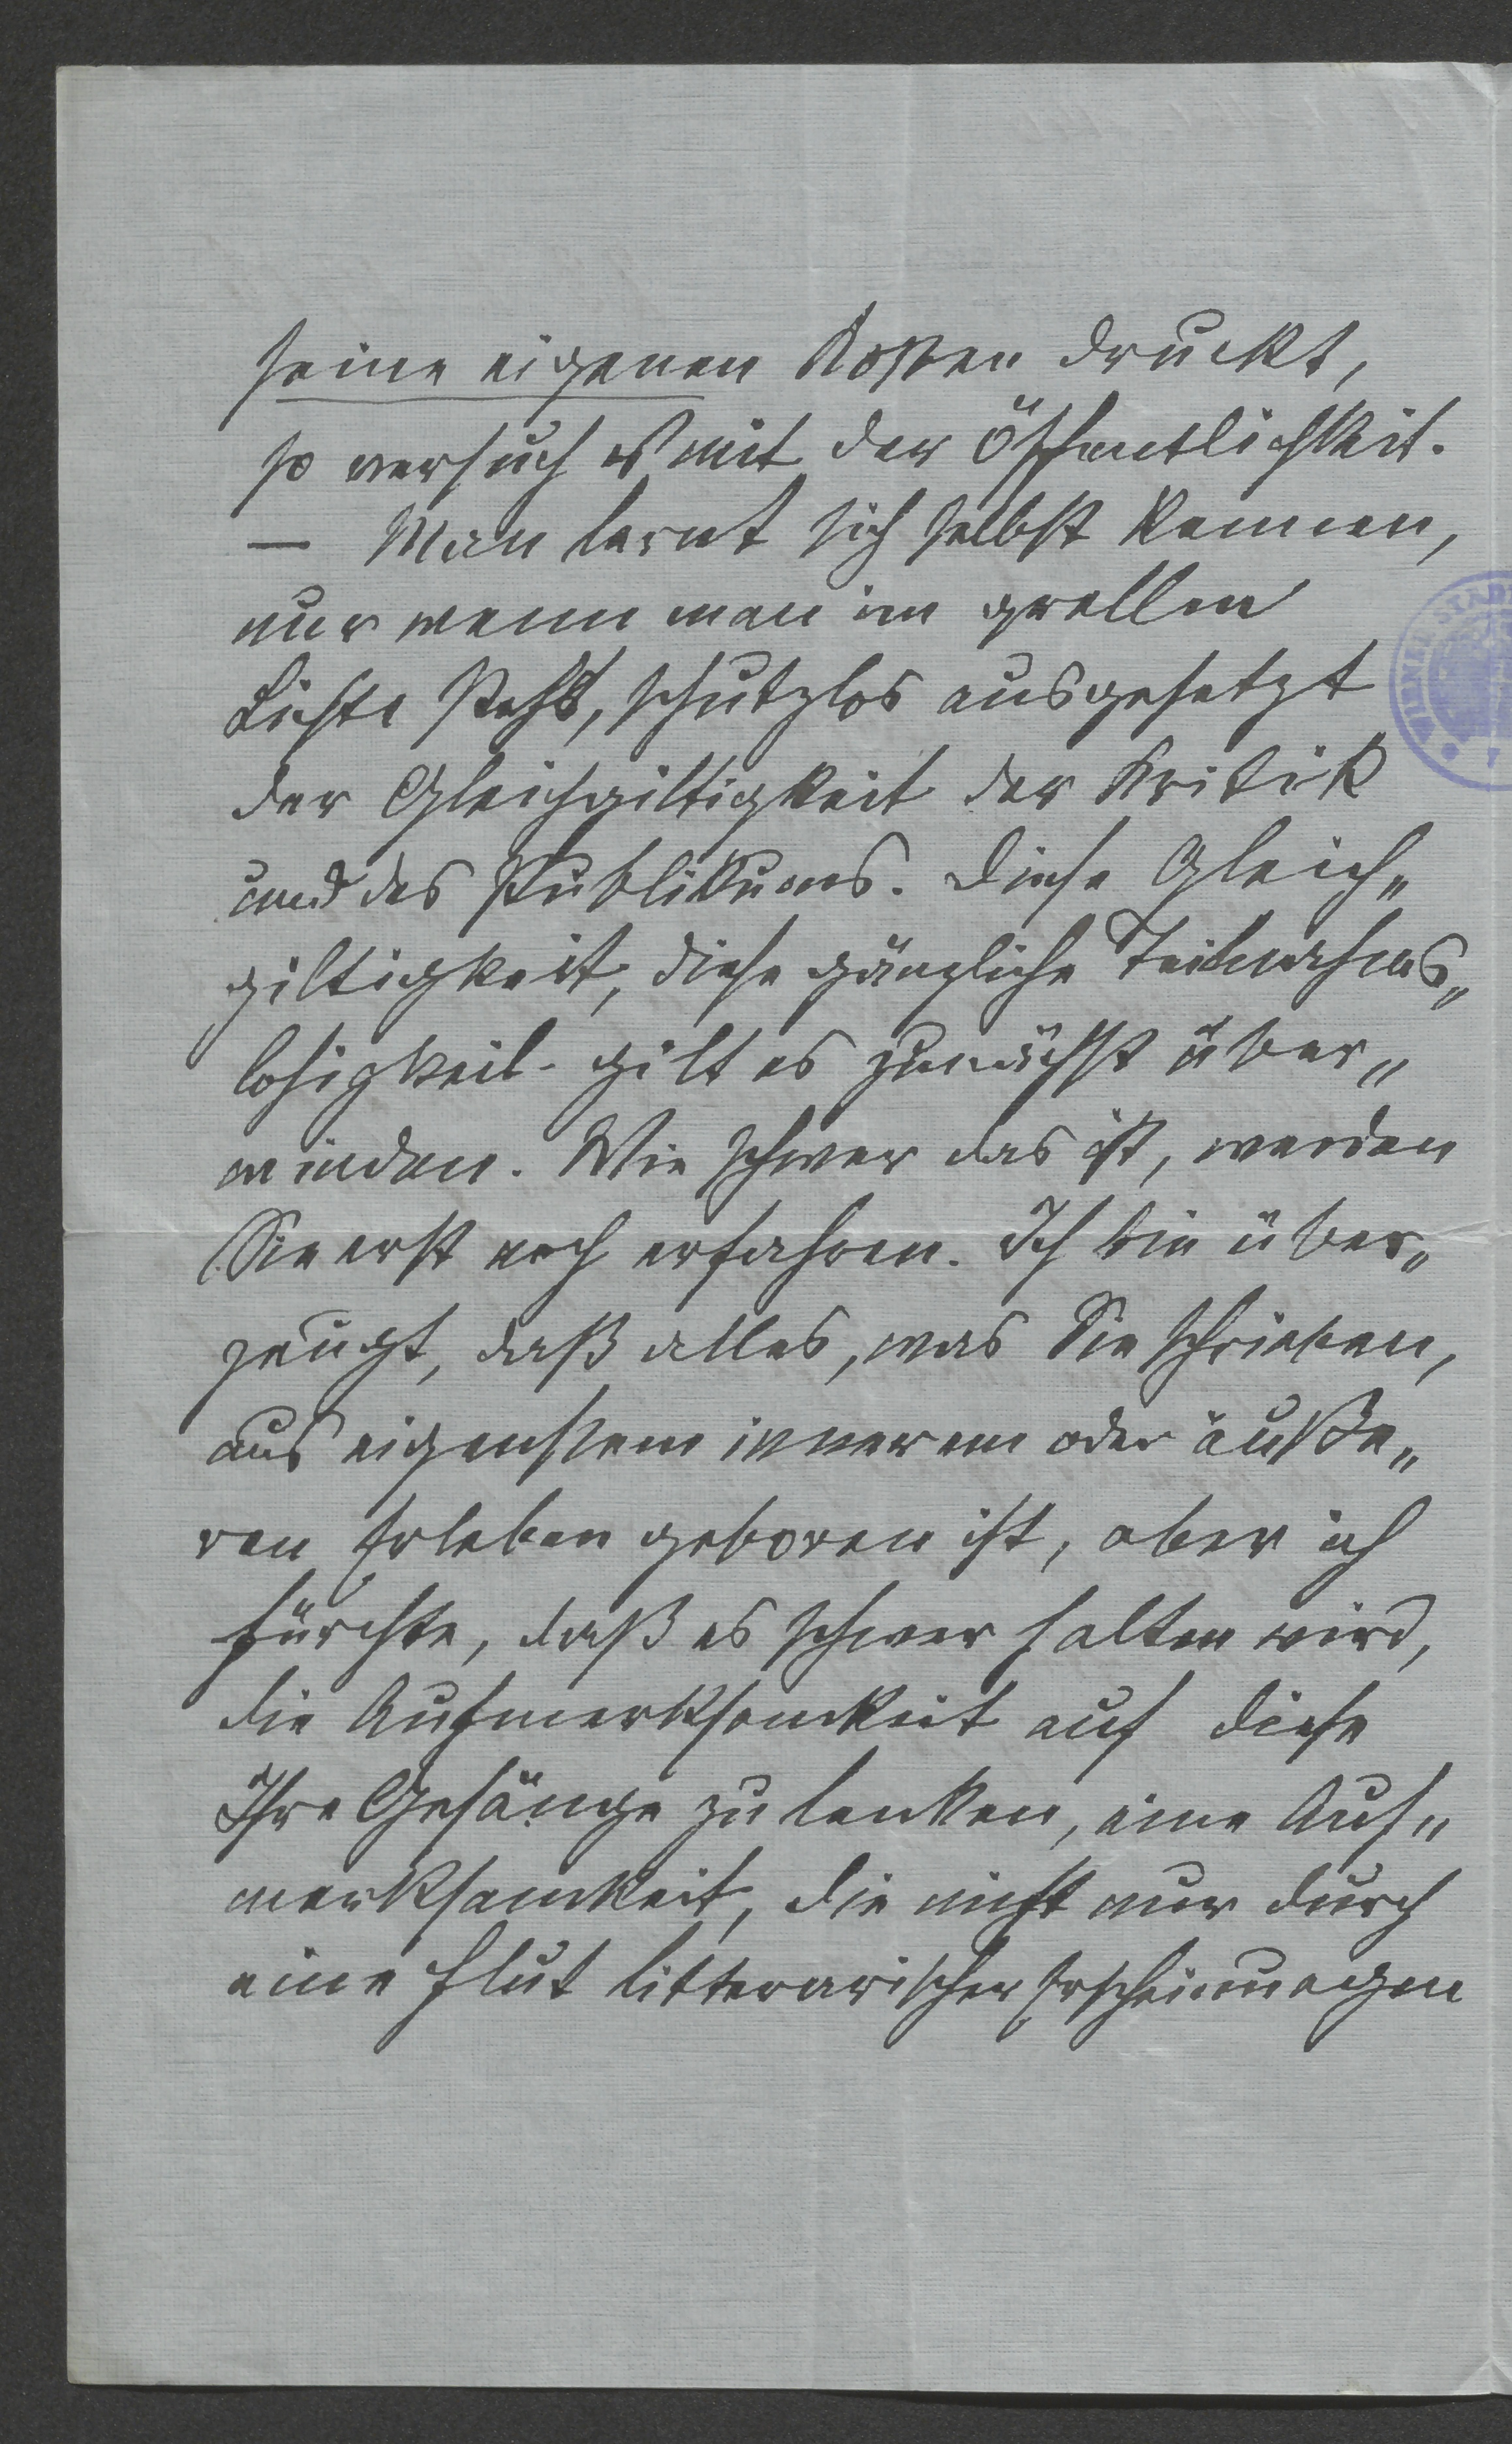 seine eigenen Kosten druckt,
so versuch es mit der Öffentlichkeit.
— Man lernt sich selbst kennen,
nur wenn man im grellen
Lichte steht, schutzlos ausgesetzt
der Gleichgiltigkeit der Kritik
und des Publikums. Diese Gleich„
giltigkeit, diese gänzliche Teilnahms„
losigkeit gilt es zunächst über„
winden. Wie schwer das ist, werden
Sie erst noch erfahren. Ich bin über„
zeugt, daß alles, was Sie schrieben,
aus eigenstem innerem oder äuße„
ren Erleben geboren ist, aber ich
fürchte, daß es schwer halten wird,
die Aufmerksamkeit auf diese
Ihre Gesänge zu lenken, eine Auf„
merksamkeit, die nicht nur durch
eine Flut litterarischer Erscheinungen
WIENER STAD